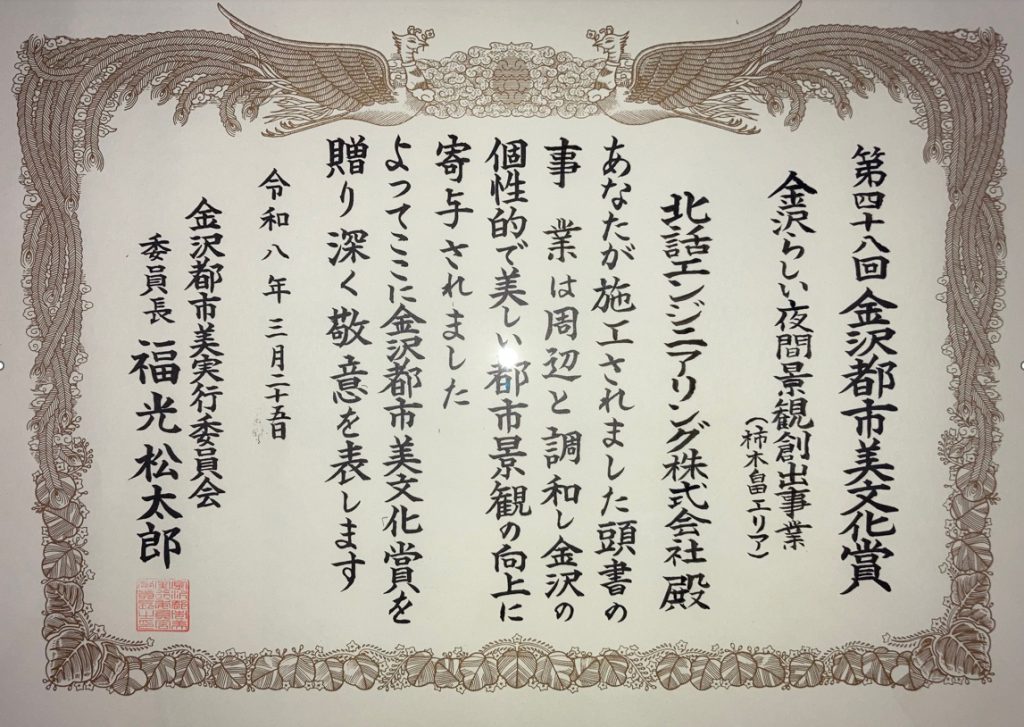 第四十八回 金沢都市美文化賞
金沢らしい夜間景観創出事業
(柿木畠エリア)
北話エンジニアリング株式会社 殿
あなたが施工されました頭書の
事 業は周辺と調和し金沢の
個性的で美しい都市景観の向上に
寄与されました
よってここに金沢都市美文化賞を
贈り深く敬意を表します
令和八年 三月二十五日
金沢都市美実行委員会
委員長 福光松太郎